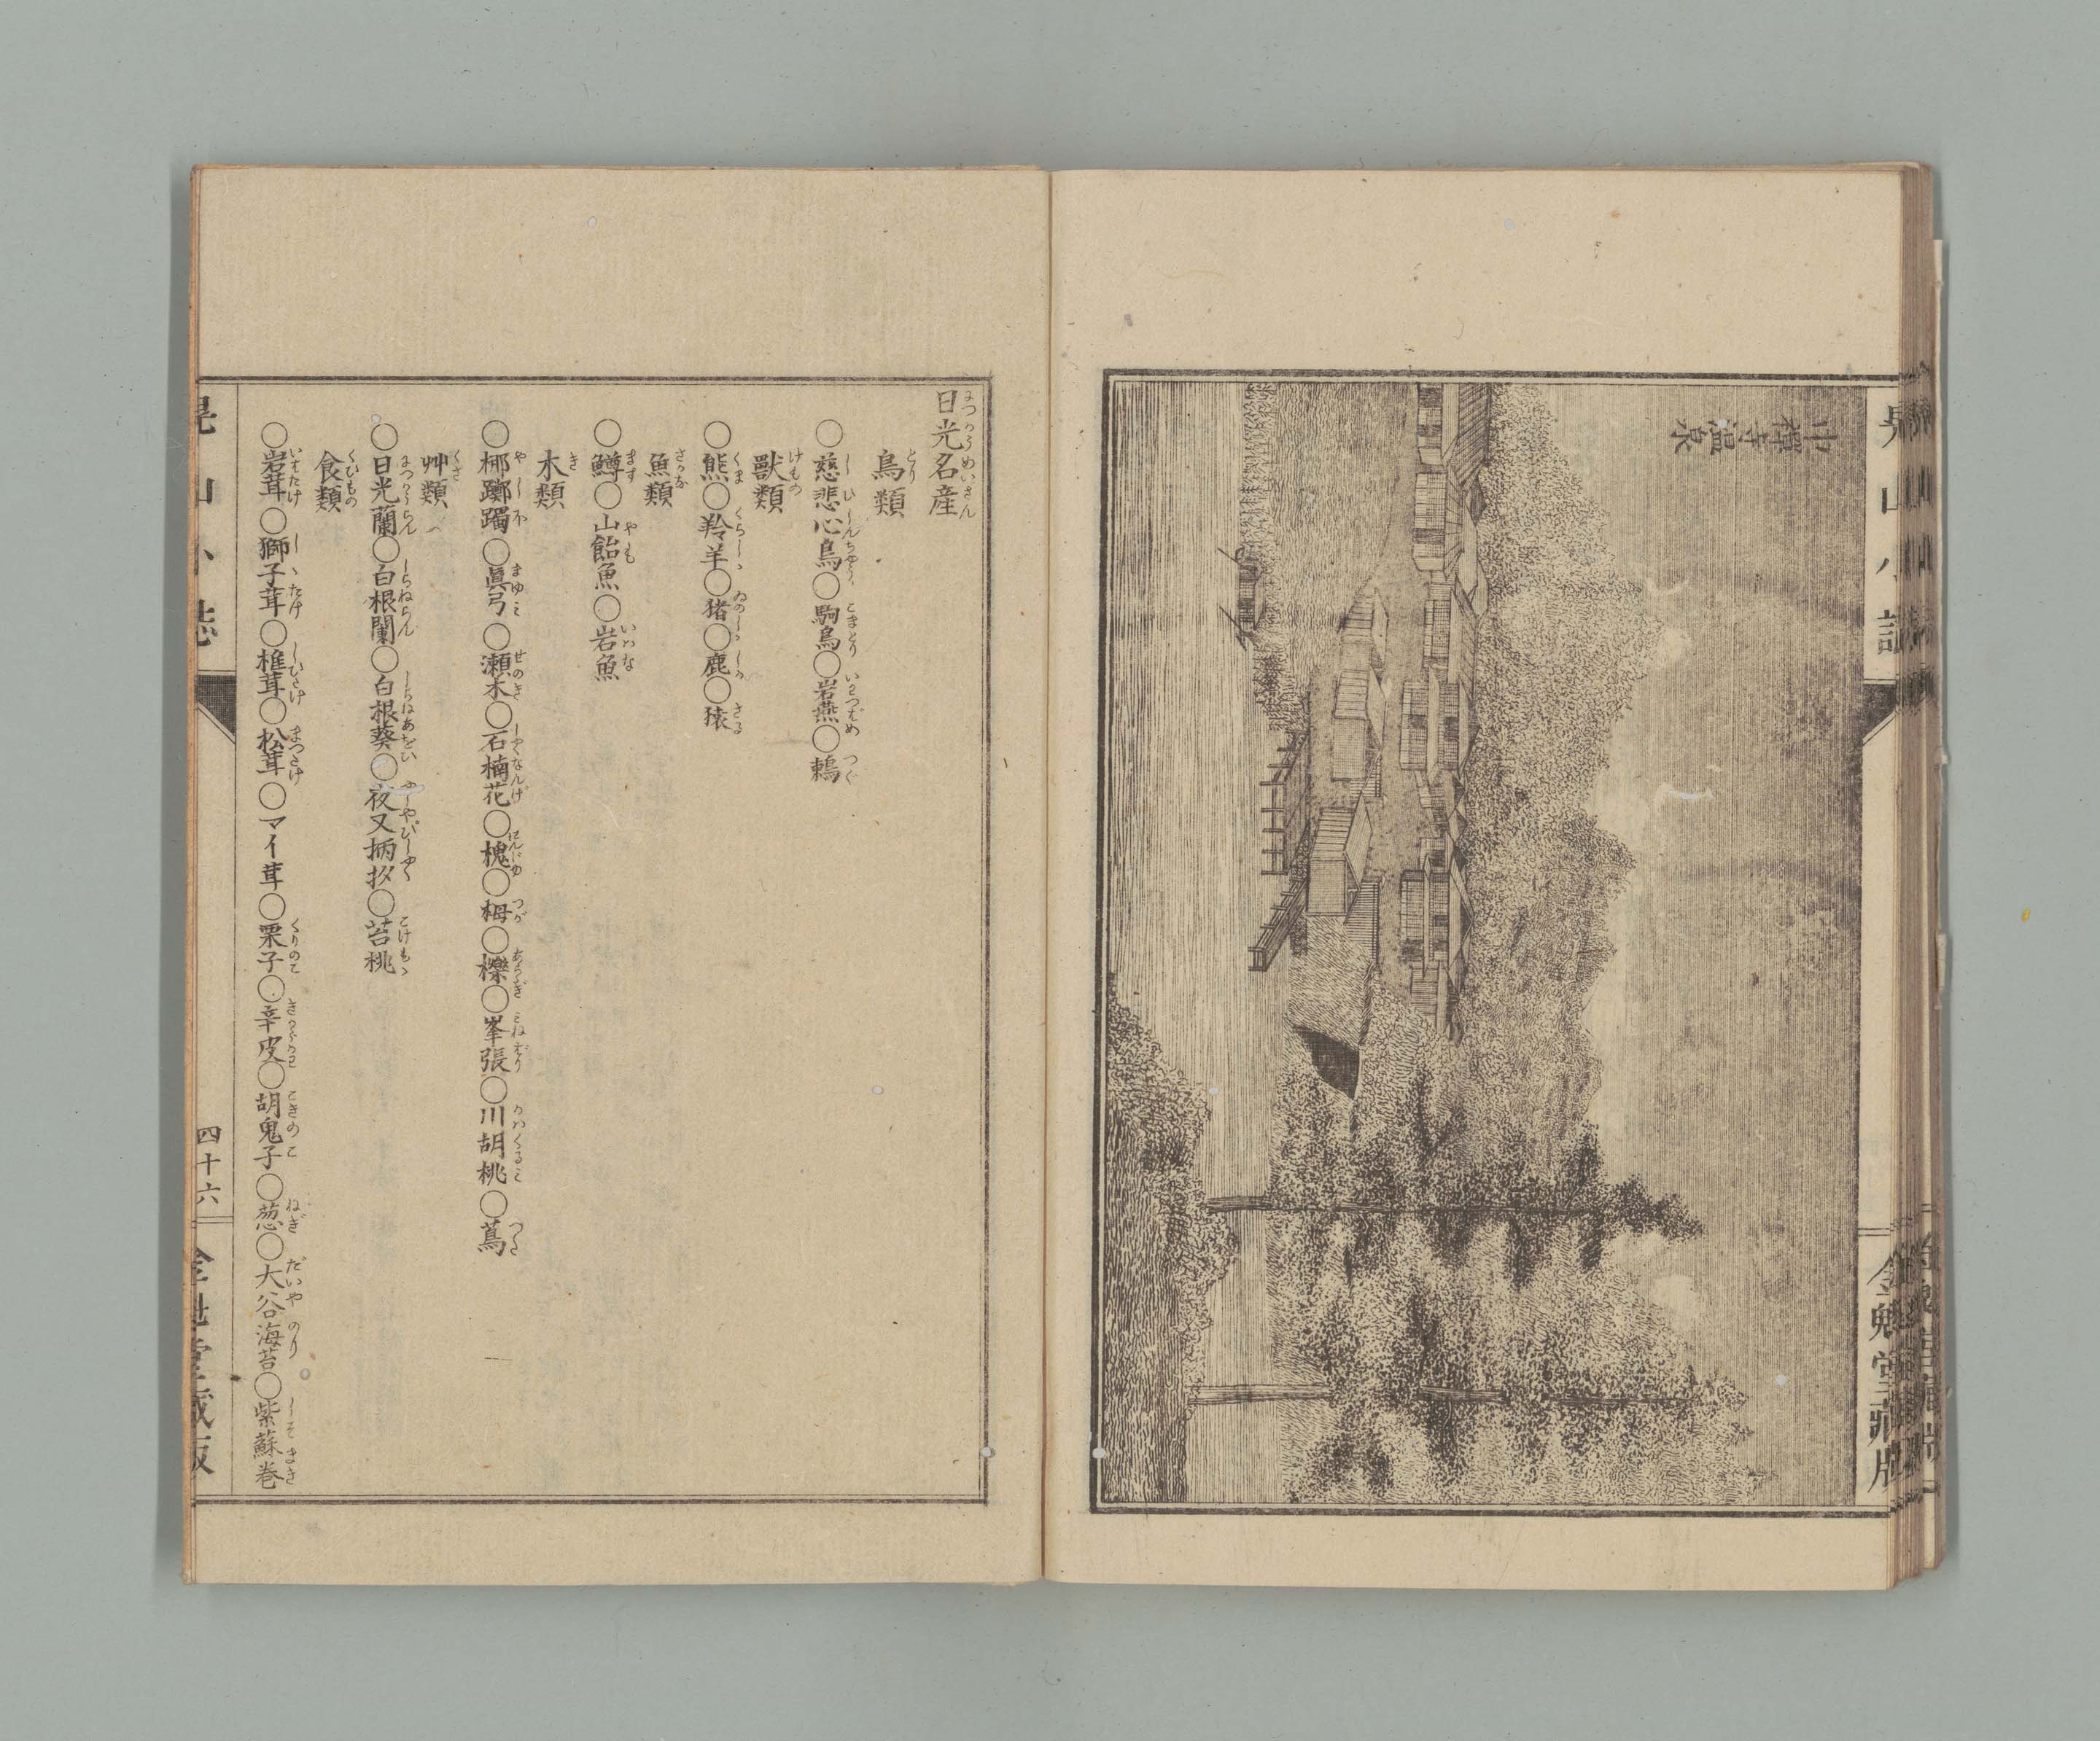 晃山小誌
金魁堂藏版
中禪寺温泉
日光名産
鳥類
○慈悲心鳥○駒鳥○岩燕○鶫
獸類
○熊○羚羊○猪○鹿○猿
魚類
○鱒○山飴魚○岩魚
木類
○梛躑躅○眞弓○瀬木○石楠花○槐○栂○櫟○峯張○川胡桃○蔦
艸類
○日光蘭○白根蘭○白根葵○夜叉柄杓○苔桃
食類
○岩茸○獅子茸○椎茸○松茸○マイ茸○栗子○辛皮○胡鬼子○葱○大谷海苔○紫蘇巻
四十六